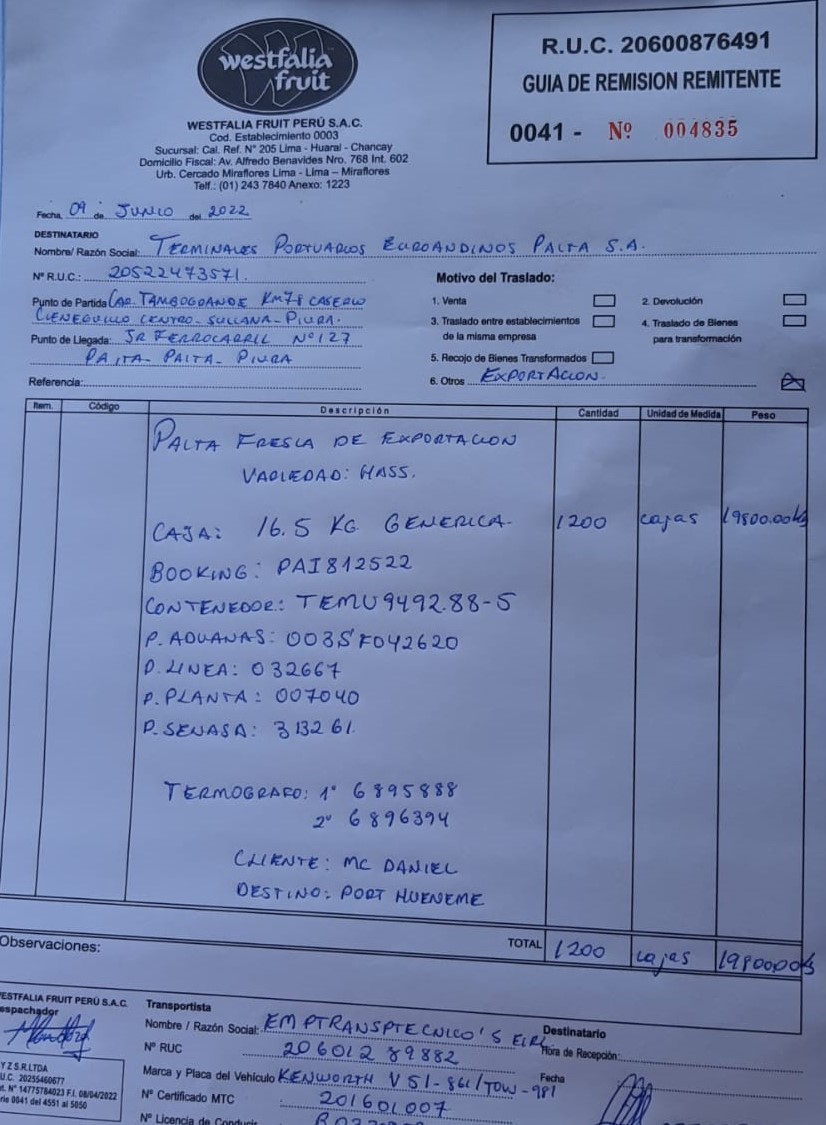 westfalia
fruit
WESTFALIA FRUIT PERÚ S.A.C.
Cod. Establecimiento 0003
Sucursal: Cal. Ref. N° 205 Lima - Huaral - Chancay
Domicilio Fiscal: Av. Alfredo Benavides Nro. 768 Int. 602
Urb. Cercado Miraflores Lima - Lima – Miraflores
Telf.: (01) 243 7840 Anexo: 1223
R.U.C. 20600876491
GUIA DE REMISION REMITENTE
0041 - Nº 004835
Fecha, 09 de JUNIO del 2022
DESTINATARIO
Nombre/ Razón Social: TERMINALES PORTUARIOS EUROANDINOS PAITA S.A.
Nº R.U.C.: 20522473571.
Punto de Partida CAR. TAMBOGRANDE KM78 CASERIO
CIENEGUILLO CENTRO - SULLANA - PIURA.
Punto de Llegada: JR FERROCARRIL Nº 127
PAITA - PAITA - PIURA
Referencia:
Motivo del Traslado:
1. Venta
2. Devolución
3. Traslado entre establecimientos
de la misma empresa
4. Traslado de Bienes
para transformación
5. Recojo de Bienes Transformados
6. Otros EXPORTACION.
Item. Código Descripción Cantidad Unidad de Medida Peso
PALTA FRESCA DE EXPORTACION
VARIEDAD: HASS.
CAJA: 16.5 KG GENERICA. 1200 cajas 19800.00kg
BOOKING: PAI812522
CONTENEDOR: TEMU9492.88-5
P. ADUANAS: 003SF042620
P. LINEA: 032667
P. PLANTA: 007040
P. SENASA: 313261.
TERMOGRAFO: 1º 6895888
2º 6896394
CLIENTE: MC DANIEL
DESTINO: PORT HUENEME
Observaciones:
TOTAL 1200 cajas 19800.00kg
WESTFALIA FRUIT PERÚ S.A.C.
espachador
Y Z S.R.LTDA
U.C. 20255460677
t. N° 14775784023 F.I. 08/04/2022
rie 0041 del 4551 al 5050
Transportista
Nombre / Razón Social: EMPTRANSPTECNICO'S EIRL
Nº RUC 20601289882
Marca y Placa del Vehículo KENWORTH V51-861/TOW-981
Nº Certificado MTC : 201601007
Nº Licencia de Conducir
Destinatario
Hora de Recepción:
Fecha